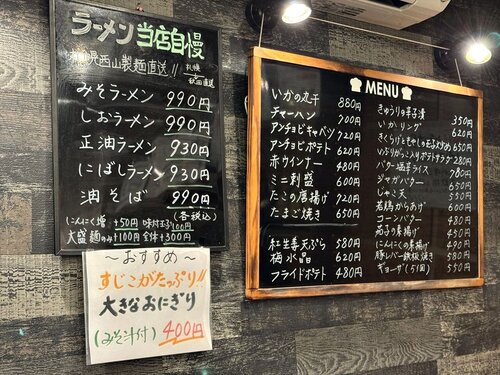 ラーメン当店自慢
札幌西山製麺直送!!
札幌
秋田直送
みそラーメン 990円
しおラーメン 990円
正油ラーメン 930円
にぼしラーメン 930円
油そば 990円
(各税込)
にんにく増+50円 味付玉子100円
大盛麺のみ+100円 全体+300円
〜おすすめ〜
すじこがたっぷり!!
大きなおにぎり
(みそ汁付) 400円
MENU
いかの丸干 880円
チャーハン 700円
アンチョビキャベツ 720円
アンチョビポテト 720円
赤ウインナー 480円
ミニ刺盛 600円
たこの唐揚げ 720円
たまご焼き 650円
紅生姜天ぷら 580円
梅水晶 620円
フライドポテト 480円
きゅうりの辛子漬 350円
いかリング 620円
きくらげともやしの玉子炒め 650円
いぶりがっこ入りポテトサラダ 280円
バター塩辛ライス
ジャガバター 650円
じゃこ天 550円
若鶏からあげ 600円
コーンバター 480円
茄子の素揚げ 450円
にんにくの素揚げ 490円
豚レバー鉄板焼き 580円
ギョーザ(5個) 550円